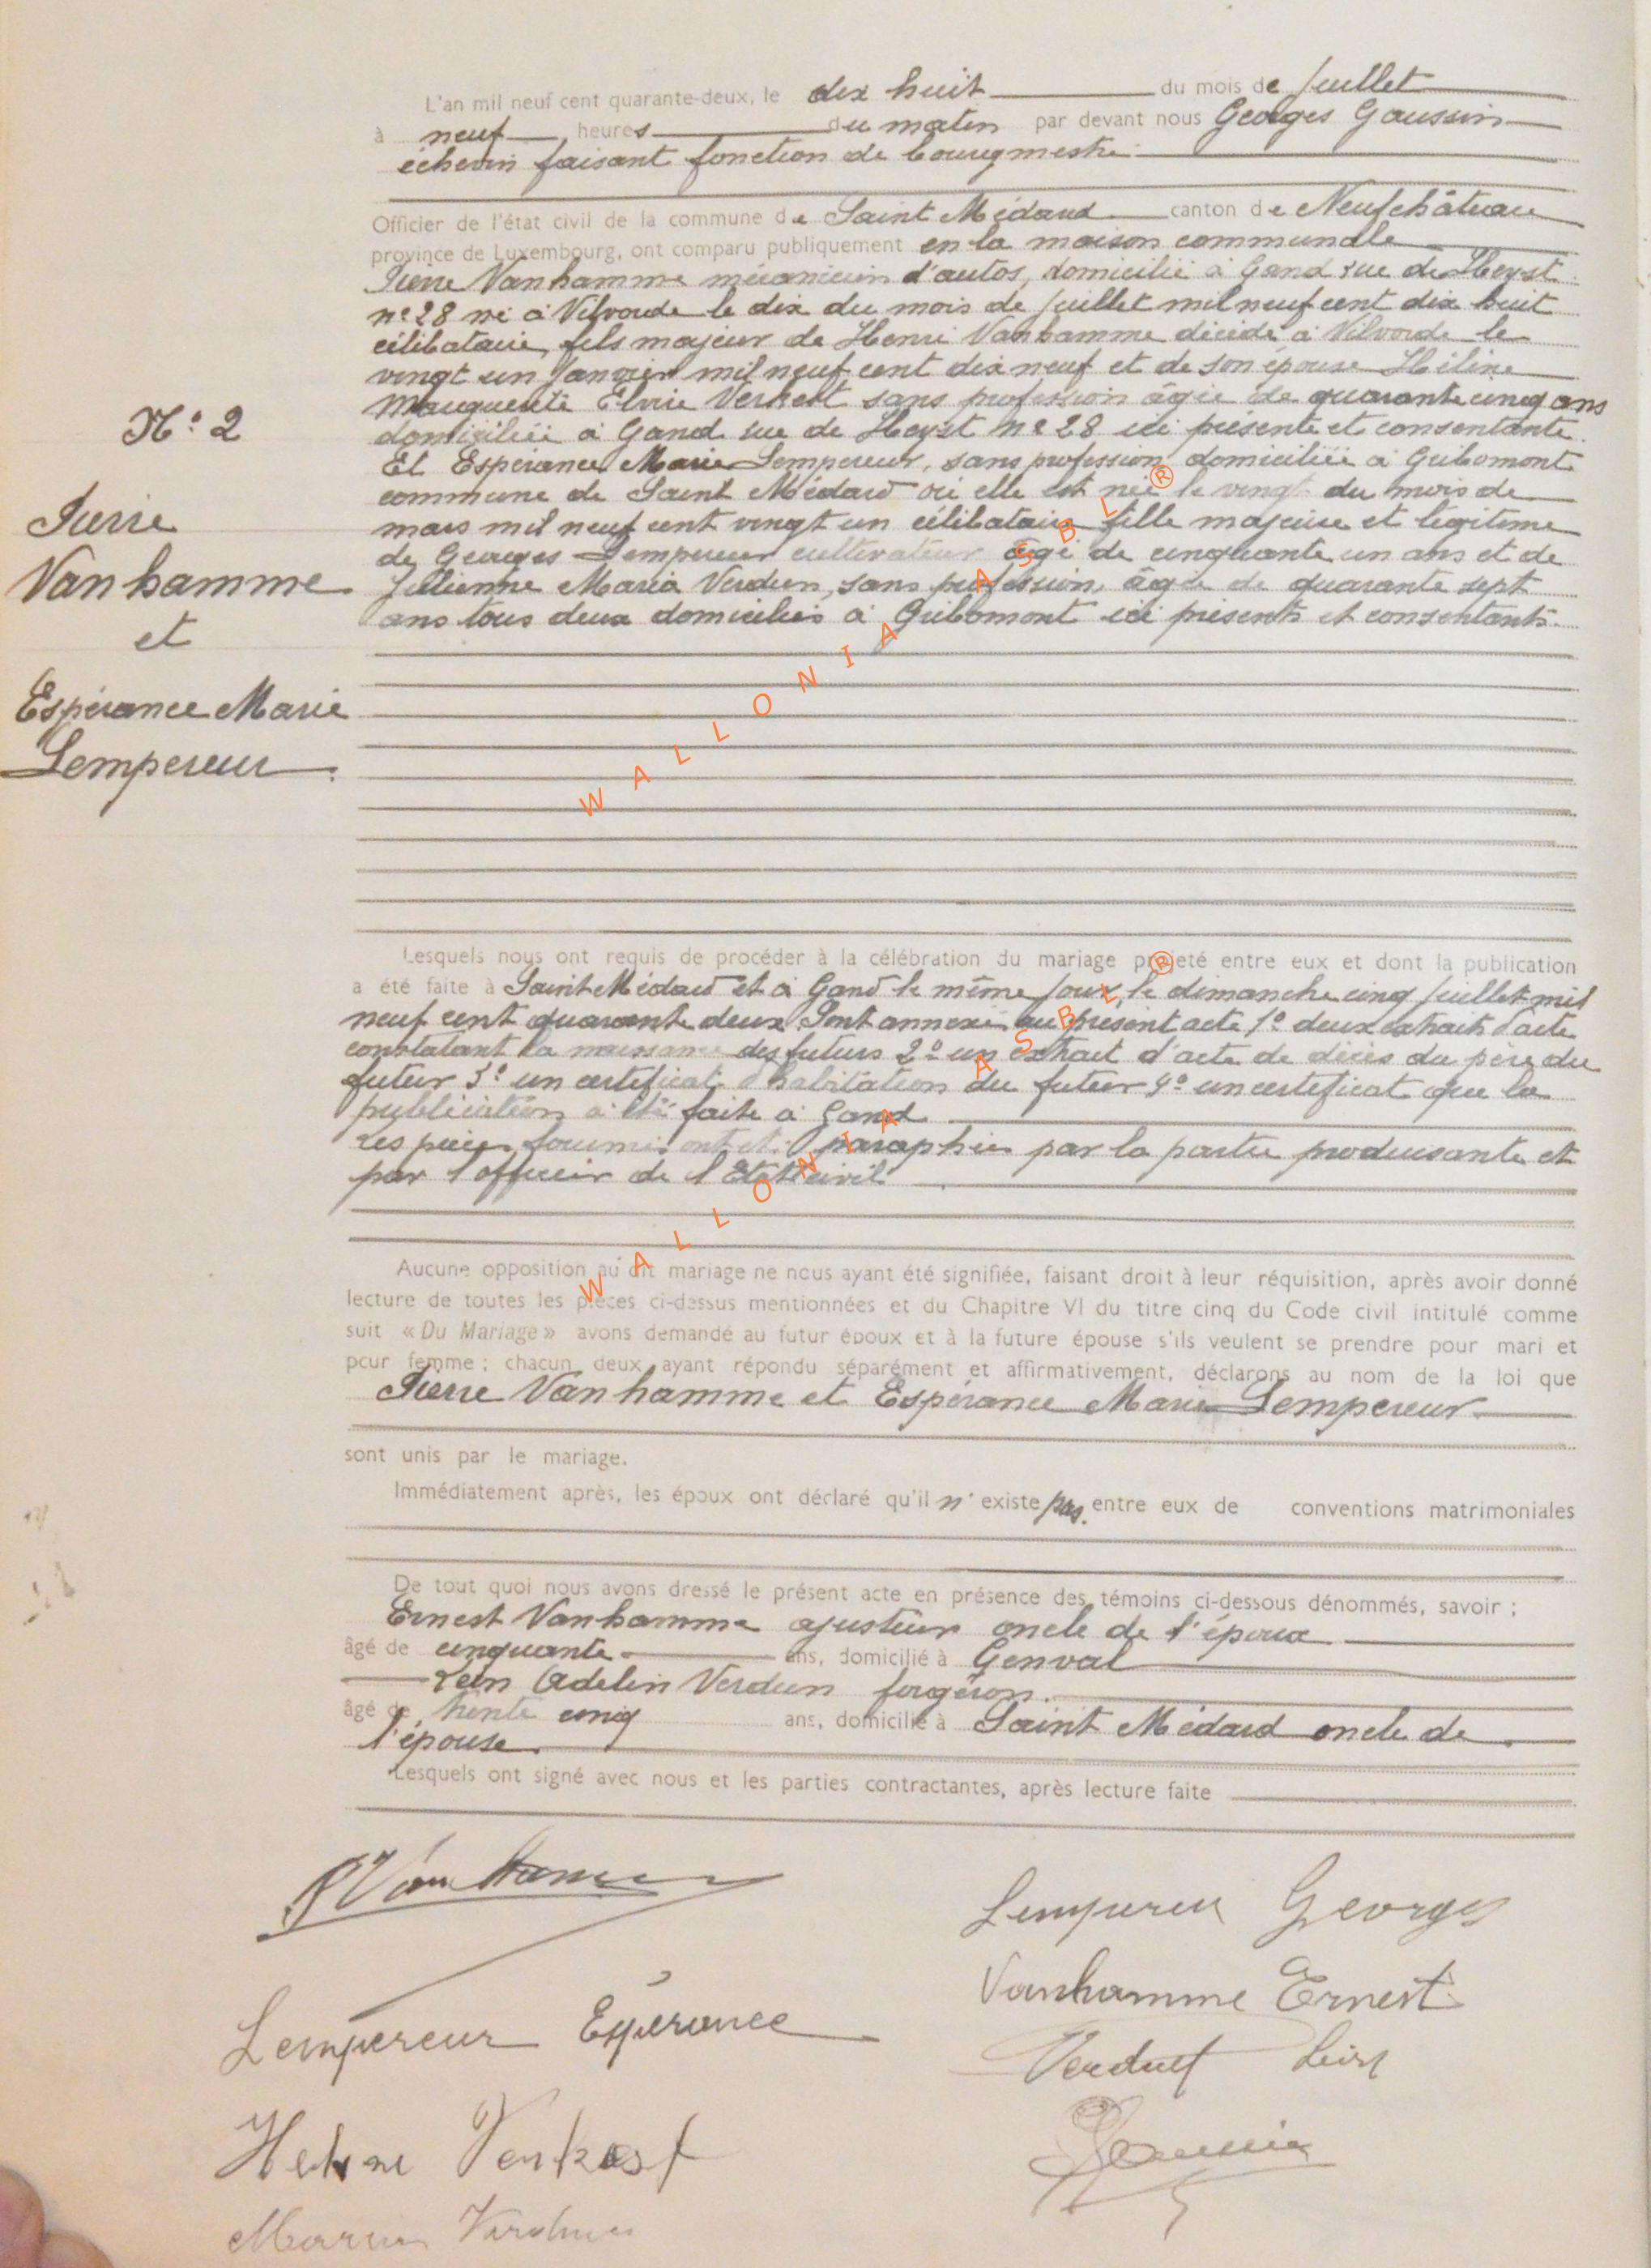 L'an mil neuf cent quarante-deux, le dix huit du mois de Juillet
à neuf heures du matin par devant nous Georges Gaussin
échevin faisant fonction de bourgmestre
Officier de l'état civil de la commune de Saint Médard canton de Neufchâteau
province de Luxembourg, ont comparu publiquement en la maison communale
Pierre Vanhamme mécanicien d'autos, domicilié à Gand rue de Heyst
n° 28 né à Vilvorde le dix du mois de Juillet mil neuf cent dix huit
célibataire, fils majeur de Henri Vanhamme décédé à Vilvorde le
vingt un Janvier mil neuf cent dix neuf et de son épouse Hélène
Marguerite Elvire Verkest sans profession âgée de quarante cinq ans
domiciliée à Gand rue de Heyst n° 28 ici présente et consentante.
Et Espérance Marie Lempereur, sans profession domiciliée à Gribomont
commune de Saint Médard où elle est née le vingt du mois de
mars mil neuf cent vingt un célibataire fille majeure et légitime
de Georges Lempereur cultivateur âgé de cinquante un ans et de
Julienne Maria Verdun, sans profession, âgée de quarante sept
ans tous deux domiciliés à Gribomont ici présents et consentants.
N° 2
Pierre
Vanhamme
et
Espérance Marie
Lempereur.
Lesquels nous ont requis de procéder à la célébration du mariage projeté entre eux et dont la publication
a été faite à Saint Médard et à Gand le même jour, le dimanche cinq Juillet mil
neuf cent quarante deux Sont annexés au présent acte 1° deux extraits d'acte
constatant la naissance des futurs 2° un extrait d'acte de décès du père du
futur 3° un certificat d'habitation du futur 4° un certificat que la
publication a été faite à Gand
Les pièces fournies ont été paraphées par la partie produisante et
par l'officier de l'Etat civil
Aucune opposition au dit mariage ne nous ayant été signifiée, faisant droit à leur réquisition, après avoir donné
lecture de toutes les pièces ci-dessus mentionnées et du Chapitre VI du titre cinq du Code civil intitulé comme
suit « Du Mariage » avons demandé au futur époux et à la future épouse s'ils veulent se prendre pour mari et
pour femme ; chacun deux ayant répondu séparément et affirmativement, déclarons au nom de la loi que
Pierre Vanhamme et Espérance Marie Lempereur
sont unis par le mariage.
Immédiatement après, les époux ont déclaré qu'il n'existe pas entre eux de conventions matrimoniales
De tout quoi nous avons dressé le présent acte en présence des témoins ci-dessous dénommés, savoir ;
Ernest Vanhamme ajusteur oncle de l'époux
âgé de cinquante ans, domicilié à Genval
Léon Adelin Verdun forgeron.
âgé de trente cinq ans, domicilié à Saint Médard oncle de
l'épouse.
Lesquels ont signé avec nous et les parties contractantes, après lecture faite
P Vanhamme
Lempereur Georges
Vanhamme Ernest
Lempereur Espérance
Verdun Léon
Helene Verkest
Gaussin
Maria Verdun
WALLONIA ASBL ®
WALLONIA ASBL ®